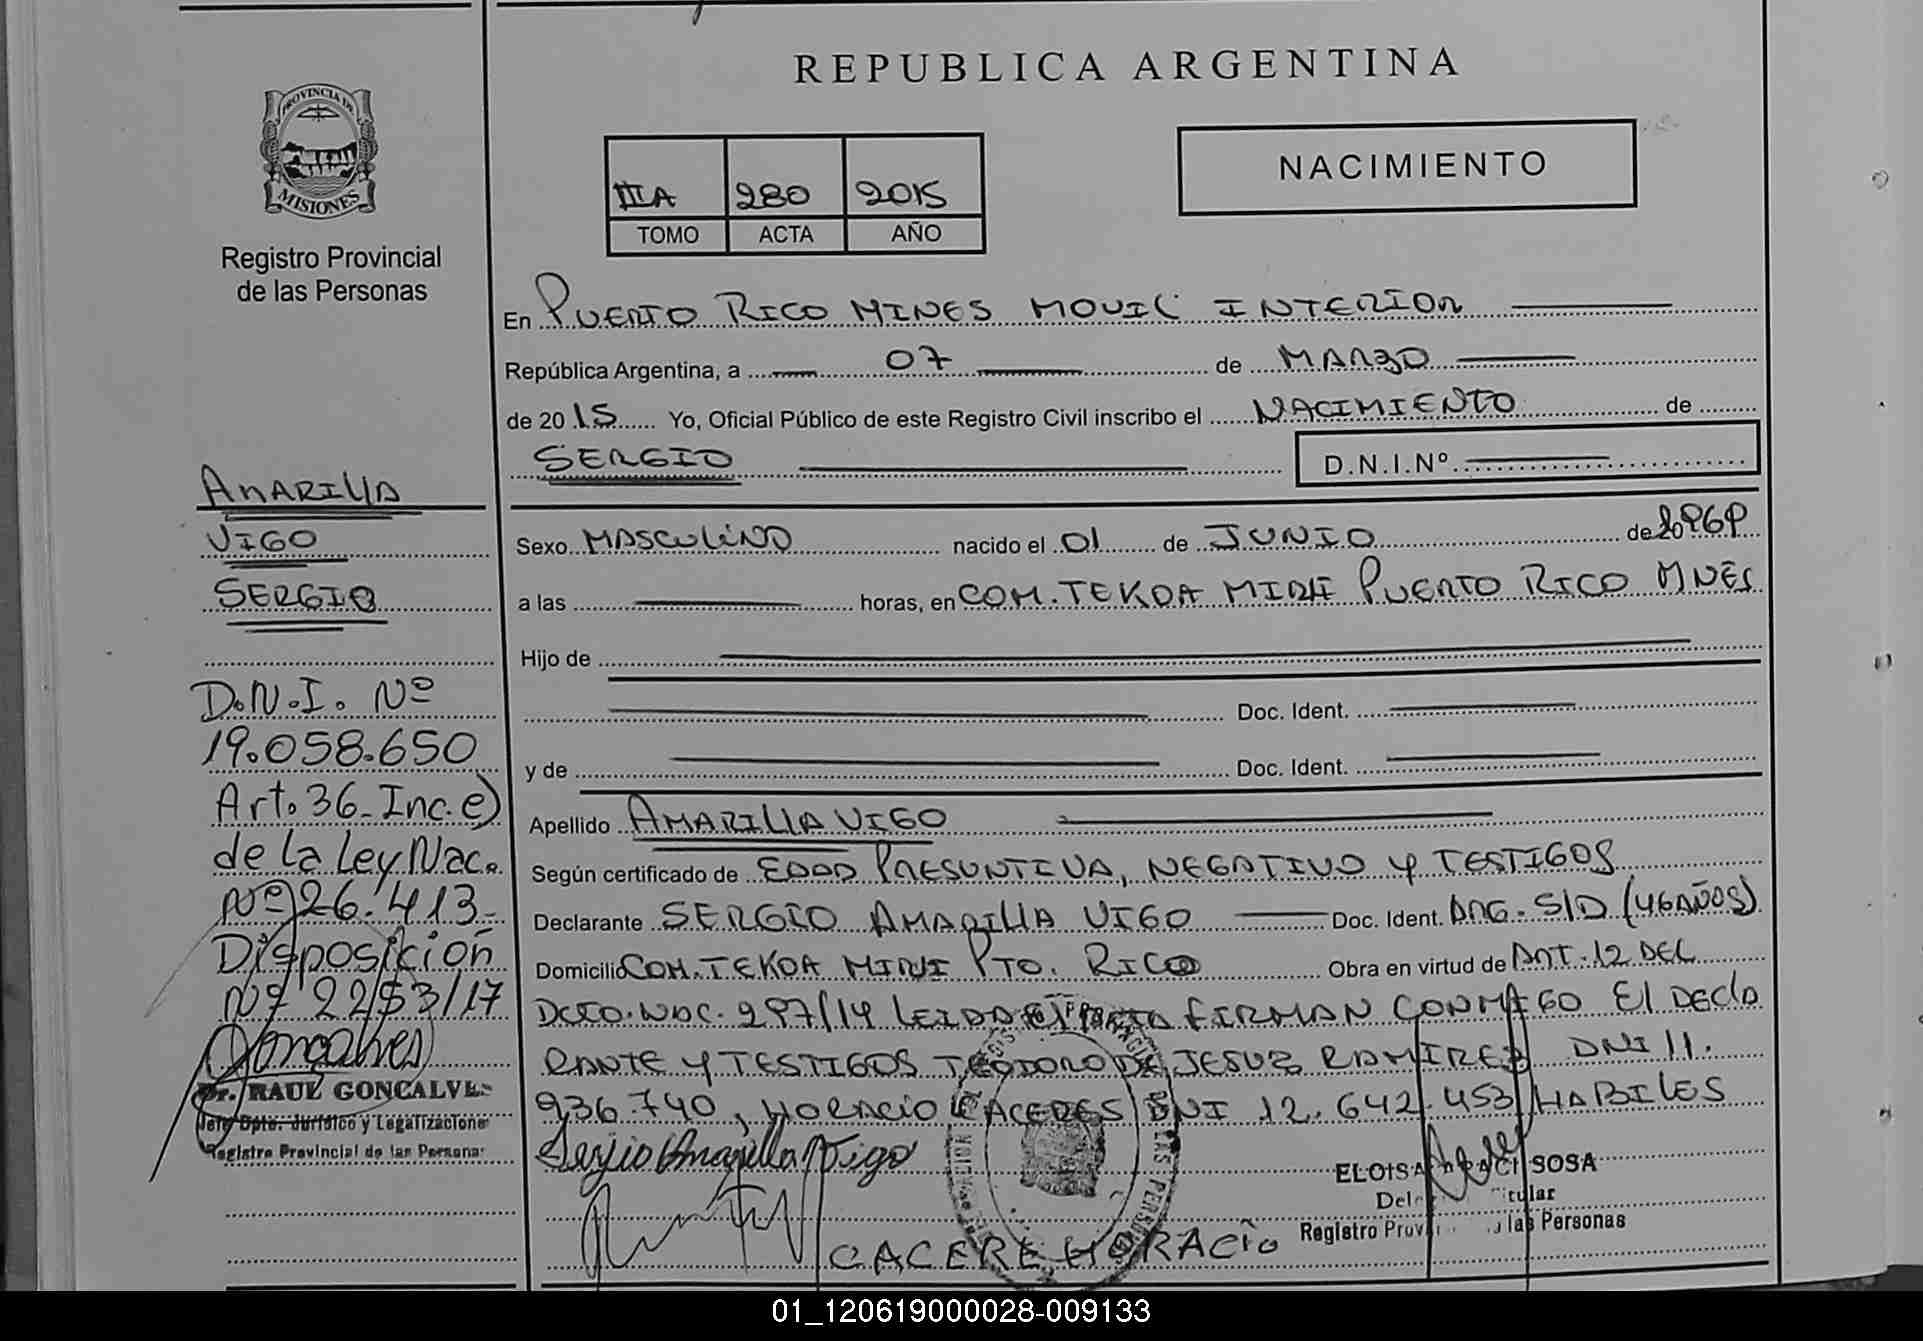 REPUBLICA ARGENTINA
PROVINCIA DE
MISIONES
Registro Provincial
de las Personas
IIIA 280 2015
TOMO ACTA AÑO
NACIMIENTO
En PUERTO RICO MINES MOVIL INTERIOR
República Argentina, a 07 de MARZO
de 2015 Yo, Oficial Público de este Registro Civil inscribo el NACIMIENTO de
SERGIO
D.N.I.Nº
AMARILLA
VIGO
SERGIO
D.N.I. Nº
19.058.650
Art. 36 - Inc. e)
de la Ley Nac.
Nº 26.413-
Disposición
Nº 2253/17
Goncalves
Dr. RAUL GONCALVES
Jefe Dpto. Jurídico y Legalizaciones
Registro Provincial de las Personas
Sexo MASCULINO nacido el 01 de JUNIO de 1969
a las horas, en COM. TEKOA MIRI PUERTO RICO MNES
Hijo de
Doc. Ident.
y de Doc. Ident.
Apellido AMARILLA VIGO
Según certificado de EDAD PRESUNTIVA, NEGATIVO Y TESTIGOS
Declarante SERGIO AMARILLA VIGO Doc. Ident. ARG. S/D (46 AÑOS)
Domicilio COM. TEKOA MIRI PTO. RICO Obra en virtud de ART. 12 DEL
DCTO. NAC. 297/14 LEIDA EL ACTA FIRMAN CONMIGO El DECLA
RANTE Y TESTIGOS TEODORO DE JESUS RAMIREZ DNI 11.
936.740, HORACIO CACERES DNI 12.642.453 HABILES
Sergio Amarilla Vigo
ELOISA SOSA
Titular
Registro Prov las Personas
CACERE HORACIO
01_120619000028-009133